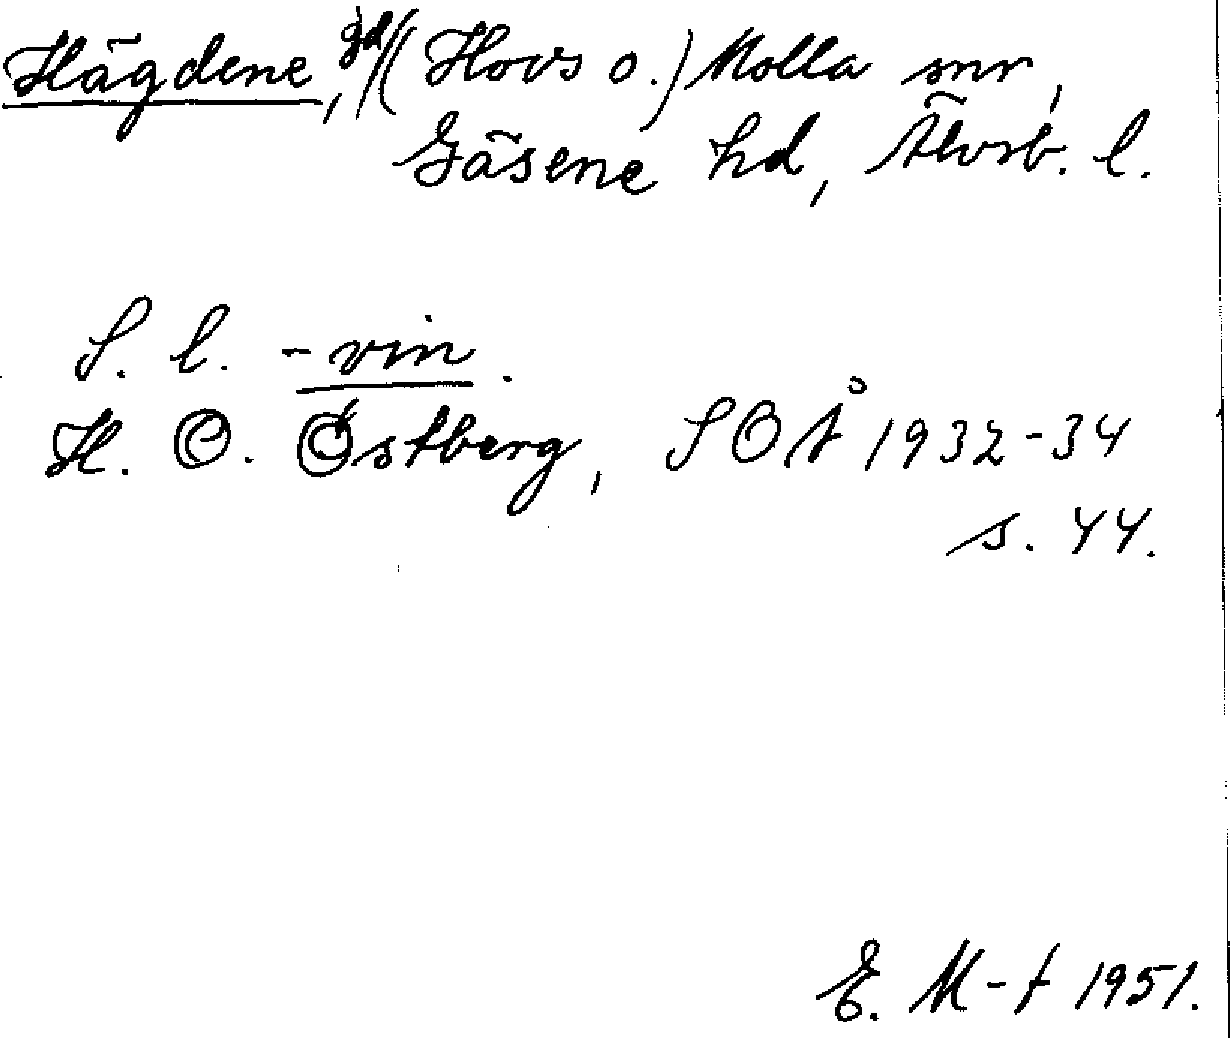 Hägdene, gd (Hovs o.) Molla snr,
Gäsene hd, Älvsb. l.
S. l. -vin.
H. O. Östberg, SOÅ 1932-34
s. 44.
E. M-t 1951.